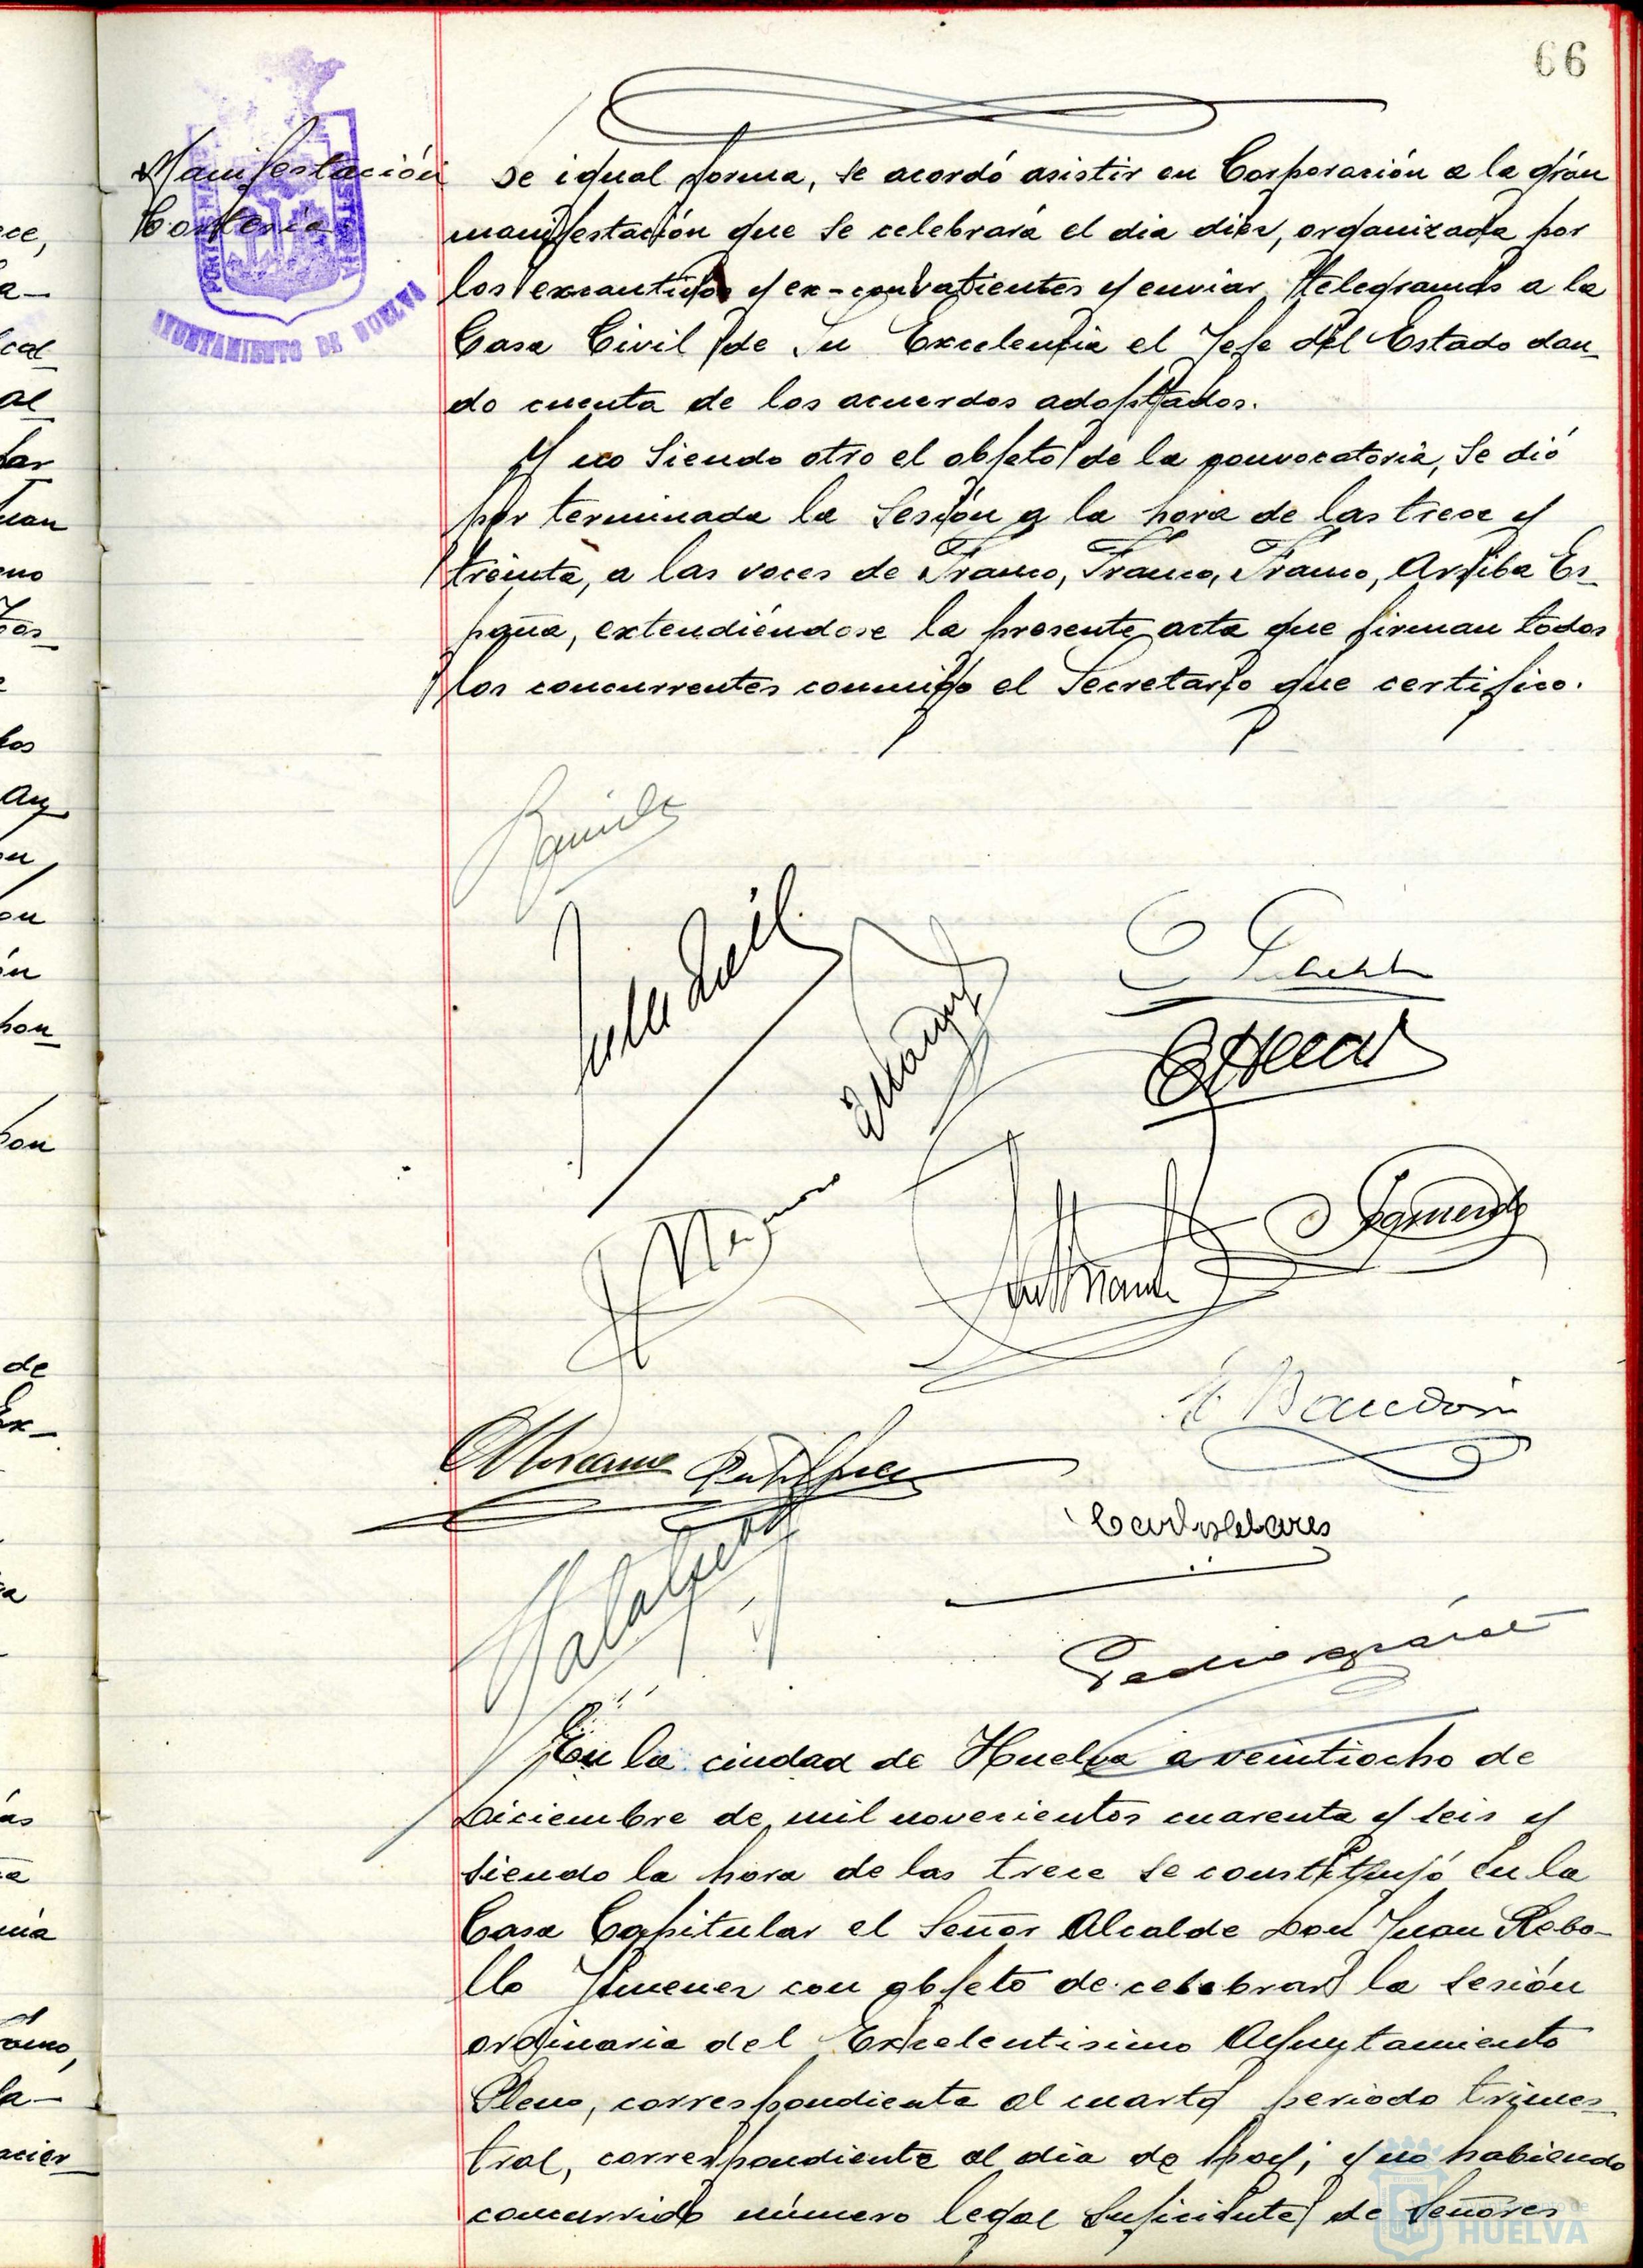 66
Manifestación
De igual forma, se acordó asistir en Corporación a la grán
manifestación que se celebrará el dia diez, organizada por
los excautivos y ex-convatientes y enviar telegramas a la
Casa Civil de Su Excelencia el Jefe del Estado dan_
do cuenta de los acuerdos adoptados.
Y no siendo otro el objeto de la convocatoria, se dió
por terminada la sesión a la hora de las trece y
treinta, a las voces de Franco, Franco, Franco, Arriba Es_
paña, extendiéndose la presente acta que firman todos
los concurrentes conmigo el Secretario que certifico.
PORTUS MARIS
AYUNTAMIENTO DE HUELVA
En la ciudad de Huelva a veintiocho de
Diciembre de mil novecientos cuarenta y seis y
siendo la hora de las trece se constituyó en la
Casa Capitular el Señor Alcalde Don Juan Rebo-
llo Jimenez con objeto de celebrar la sesión
ordinaria del Excelentisimo Ayuntamiento
Pleno, correspondiente al cuarto periodo trimes_
tral, correspondiente al dia de hoy; y no habiendo
concurrido número legal suficiente de Señores
HUELVA